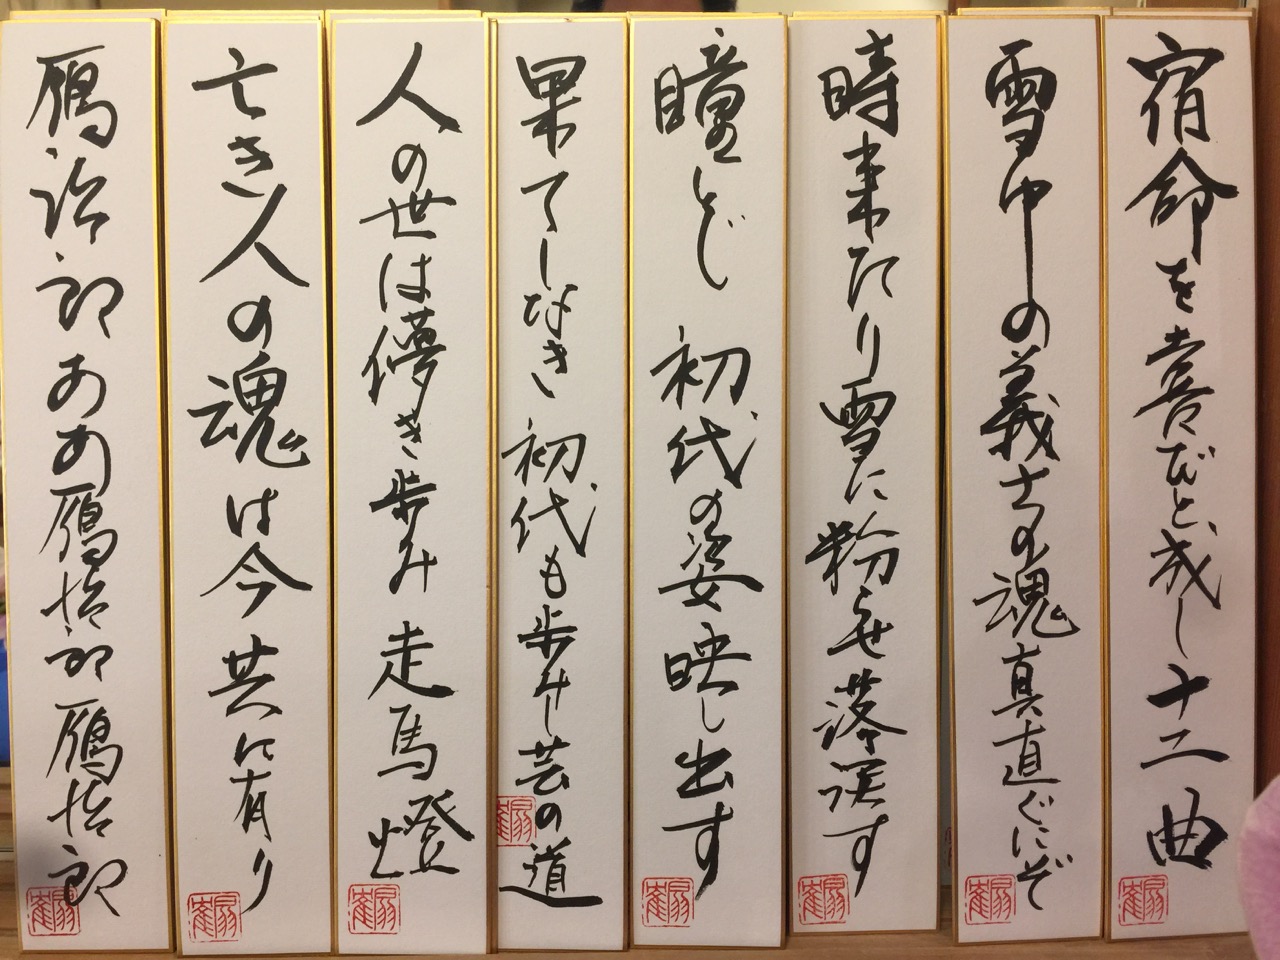 宿命を喜びと成し十二曲
雪中の義士の魂真直ぐにぞ
時来たり雪に粉らせ落涙す
瞳とじ初代の姿映し出す
果てしなき初代も歩みし芸の道
人の世は儚き歩み走馬燈
亡き人の魂は今共に有り
鴈治郎ああ鴈治郎鴈治郎